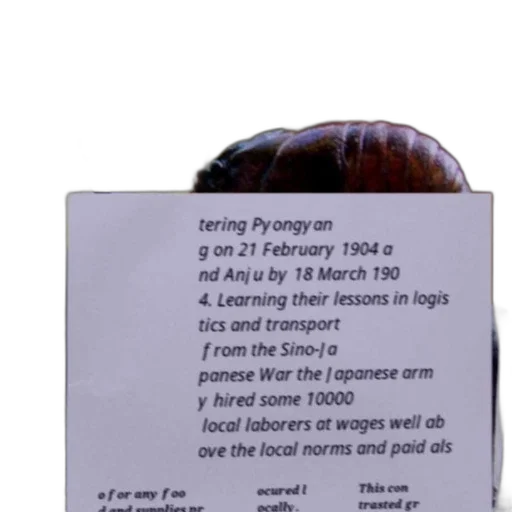 tering Pyongyan
g on 21 February 1904 a
nd Anju by 18 March 190
4. Learning their lessons in logis
tics and transport
from the Sino-Ja
panese War the Japanese arm
y hired some 10000
local laborers at wages well ab
ove the local norms and paid als
o for any foo
d and supplies pr
ocured l
ocally.
This con
trasted gr